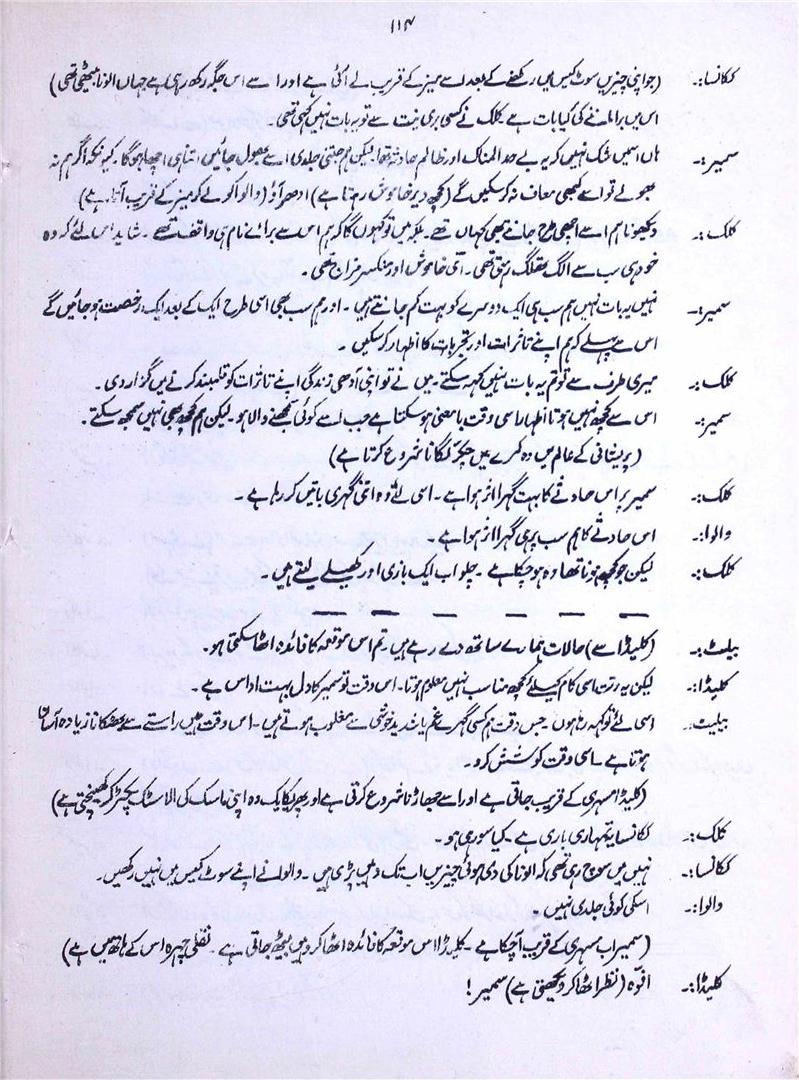 ۱۱۴
ککانسا:۔ (جو اپنی چیزیں سوٹ کیس میں رکھنے کے بعد اسے میز کے قریب لے آئی ہے اور اسے اس جگہ رکھ رہی ہے جہاں الونا بیٹھی تھی)
اس میں برا ماننے کی کیا بات ہے کلک نے کسی بری نیت سے تو یہ بات نہیں کہی تھی۔
سمیر:۔ ہاں اسمیں شک نہیں کہ یہ بے حد المناک اور ظالم حادثہ تھا لیکن ہم جتنی جلدی اسے بھول جائیں اتنا ہی اچھا ہوگا۔ کیونکہ اگر ہم نہ
بھولے تو اسے کبھی معاف نہ کرسکیں گے (کچھ دیر خاموش رہتا ہے) ادھر آؤ (والوا کو لے کر میز کے قریب آتا ہے)
کلک:۔ دیکھو نا ہم اسے اچھی طرح جانتے بھی کہاں تھے۔ بلکہ میں تو کہوں گا کہ ہم اس سے برائے نام ہی واقف تھے۔ شاید اس لئے کہ وہ
خود ہی سب سے الگ تھلگ رہتی تھی۔ اتنی خاموش اور منکسر مزاج تھی۔
سمیر:۔ نہیں یہ بات نہیں ہم سب ہی ایک دوسرے کو بہت کم جانتے ہیں۔ اور ہم سب بھی اسی طرح ایک کے بعد ایک رخصت ہوجائیں گے
اس سے پہلے کہ ہم اپنے تاثرات اور تجربات کا اظہار کرسکیں۔
کلک:۔ میری طرف سے تو تم یہ بات نہیں کہہ سکتے۔ میں نے تو اپنی آدھی زندگی اپنے تاثرات کو قلمبند کرنے میں گزار دی۔
سمیر:۔ اس سے کچھ نہیں ہوتا اظہار اسی وقت با معنی ہوسکتا ہے جب اسے کوئی سمجھنے والا ہو۔ لیکن ہم کچھ بھی نہیں سمجھ سکتے۔
(پریشانی کے عالم میں وہ کمرے میں چکر لگانا شروع کرتا ہے)
کلک:۔ سمیر پر اس حادثے کا بہت گہرا اثر ہوا ہے۔ اسی لئے وہ اتنی گہری باتیں کر رہا ہے۔
والوا:۔ اس حادثے کا ہم سب پر ہی گہرا اثر ہوا ہے۔
کلک:۔ لیکن جو کچھ ہونا تھا وہ ہوچکا ہے۔ چلو اب ایک بازی اور کھیلے لیتے ہیں۔
— — — — — —
بیلٹ:۔ (کلیڈا سے) حالات ہمارے ساتھ دے رہے ہیں۔ تم اس موقعہ کا فائدہ اٹھا سکتی ہو۔
کلیڈا:۔ لیکن یہ وقت اس کام کیلئے کچھ مناسب نہیں معلوم ہوتا۔ اس وقت تو سمیر کا دل بہت اداس ہے۔
بیلیٹ:۔ اسی لئے تو کہہ رہا ہوں۔ جس وقت ہم کسی گہرے غم یا شدید خوشی سے مغلوب ہوتے ہیں۔ اس وقت ہمیں راستے سے بھٹکانا زیادہ آسان
ہوتا ہے۔ اسی وقت کوشش کرو۔
(کلیڈا مسہری کے قریب جاتی ہے اور اسے جھاڑنا شروع کرتی ہے اور پھر یکایک وہ اپنی ماسک کی الاسٹک پکڑ کر کھینچتی ہے)
کلک:۔ ککانسا یہ تمہاری باری ہے۔ کیا سو رہی ہو۔
ککانسا:۔ نہیں میں سوچ رہی تھی کہ الونا کی دی ہوئی چیزیں اب تک وہیں پڑی ہیں۔ والوا نے اپنے سوٹ کیس میں نہیں رکھیں۔
والوا:۔ اسکی کوئی جلدی نہیں۔
(سمیر اب مسہری کے قریب آچکا ہے۔ کلیڈا اس موقعہ کا فائدہ اٹھا کر وہیں بیٹھ جاتی ہے۔ نقلی چہرہ اس کے ہاتھ میں ہے)
کلیڈا:۔ افوہ (نظر اٹھا کر دیکھتی ہے) سمیر!